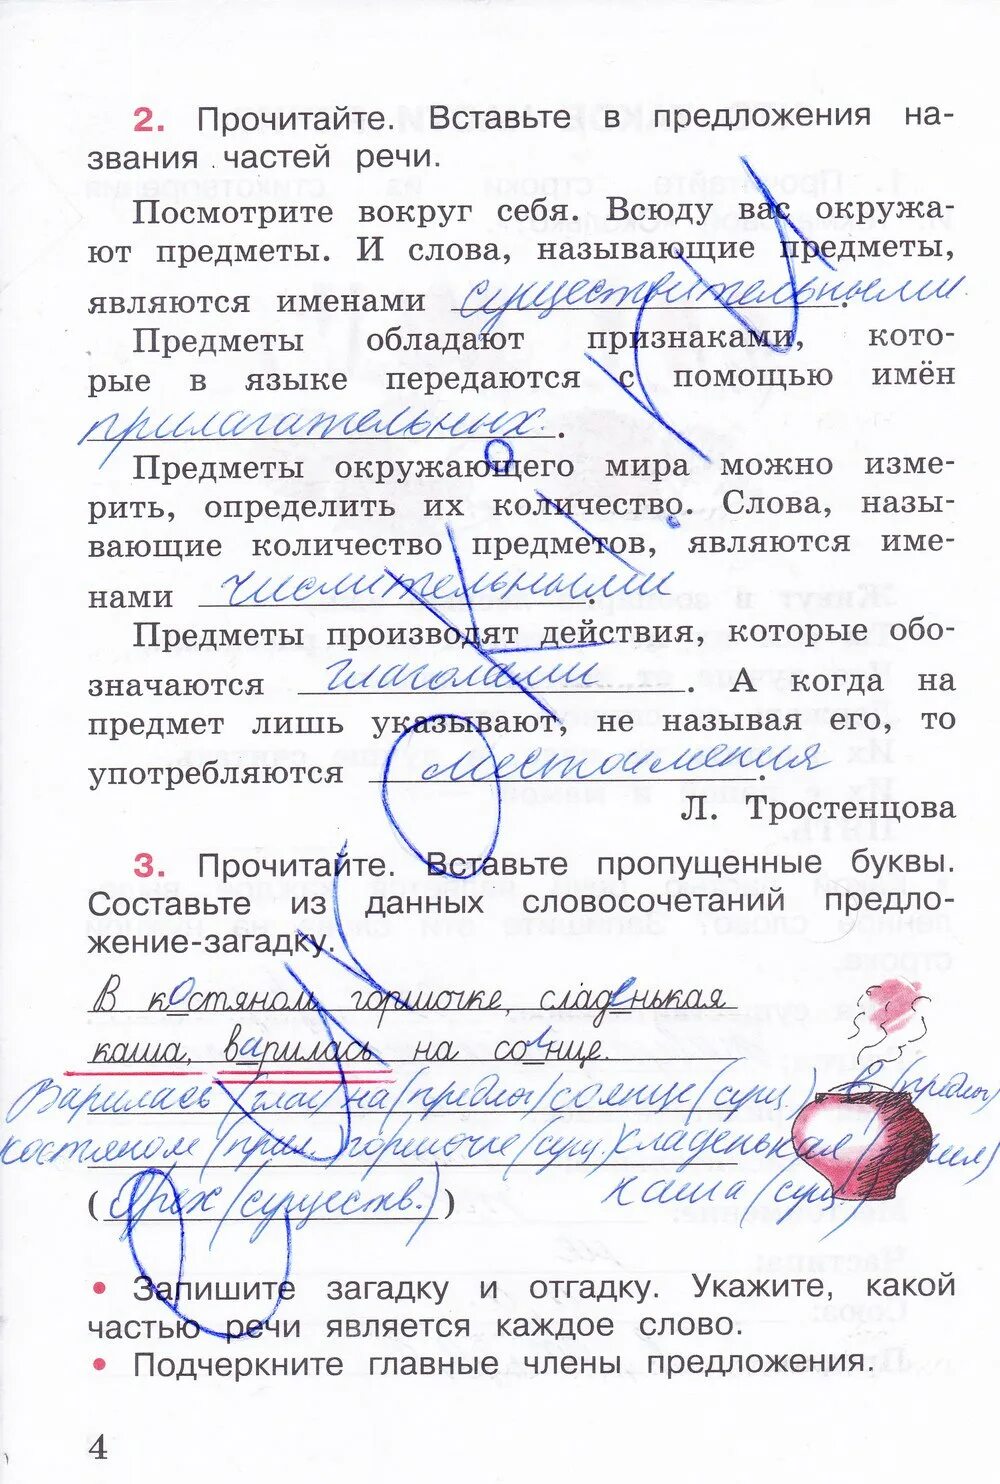 2. Прочитайте. Вставьте в предложения на-
звания частей речи.
Посмотрите вокруг себя. Всюду вас окружа-
ют предметы. И слова, называющие предметы,
являются именами существительными.
Предметы обладают признаками, кото-
рые в языке передаются с помощью имён
прилагательных.
Предметы окружающего мира можно изме-
рить, определить их количество. Слова, назы-
вающие количество предметов, являются име-
нами числительными.
Предметы производят действия, которые обо-
значаются глаголами. А когда на
предмет лишь указывают, не называя его, то
употребляются местоимения.
Л. Тростенцова
3. Прочитайте. Вставьте пропущенные буквы.
Составьте из данных словосочетаний предло-
жение-загадку.
В костяном горшочке, сладенькая
каша, варилась на солнце.
Варилась (глаг) на (предлог) солнце (сущ.) в (предлог)
костяном (прил.) горшочке (сущ.) сладенькая (прил)
каша (сущ)
(Орех (существ.))
• Запишите загадку и отгадку. Укажите, какой
частью речи является каждое слово.
• Подчеркните главные члены предложения.
4